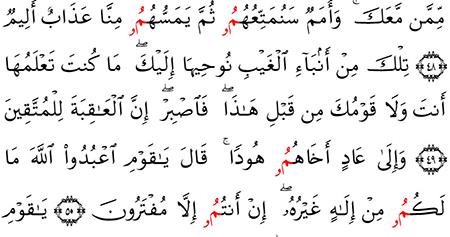 مِّمَّن مَّعَكَ ۚ وَأُمَمٌ سَنُمَتِّعُهُمُۥ ثُمَّ يَمَسُّهُمُۥ مِنَّا عَذَابٌ أَلِيمٌ
﴿٤٨﴾ تِلْكَ مِنْ أَنۢبَآءِ ٱلْغَيْبِ نُوحِيهَآ إِلَيْكَ ۖ مَا كُنتَ تَعْلَمُهَآ
أَنتَ وَلَا قَوْمُكَ مِن قَبْلِ هَـٰذَا ۖ فَٱصْبِرْ ۖ إِنَّ ٱلْعَـٰقِبَةَ لِلْمُتَّقِينَ
﴿٤٩﴾ وَإِلَىٰ عَادٍ أَخَاهُمُۥ هُودًا ۚ قَالَ يَـٰقَوْمِ ٱعْبُدُوا۟ ٱللَّهَ مَا
لَكُمُۥ مِنْ إِلَـٰهٍ غَيْرُهُۥٓ ۖ إِنْ أَنتُمُۥ إِلَّا مُفْتَرُونَ ﴿٥٠﴾ يَـٰقَوْمِ